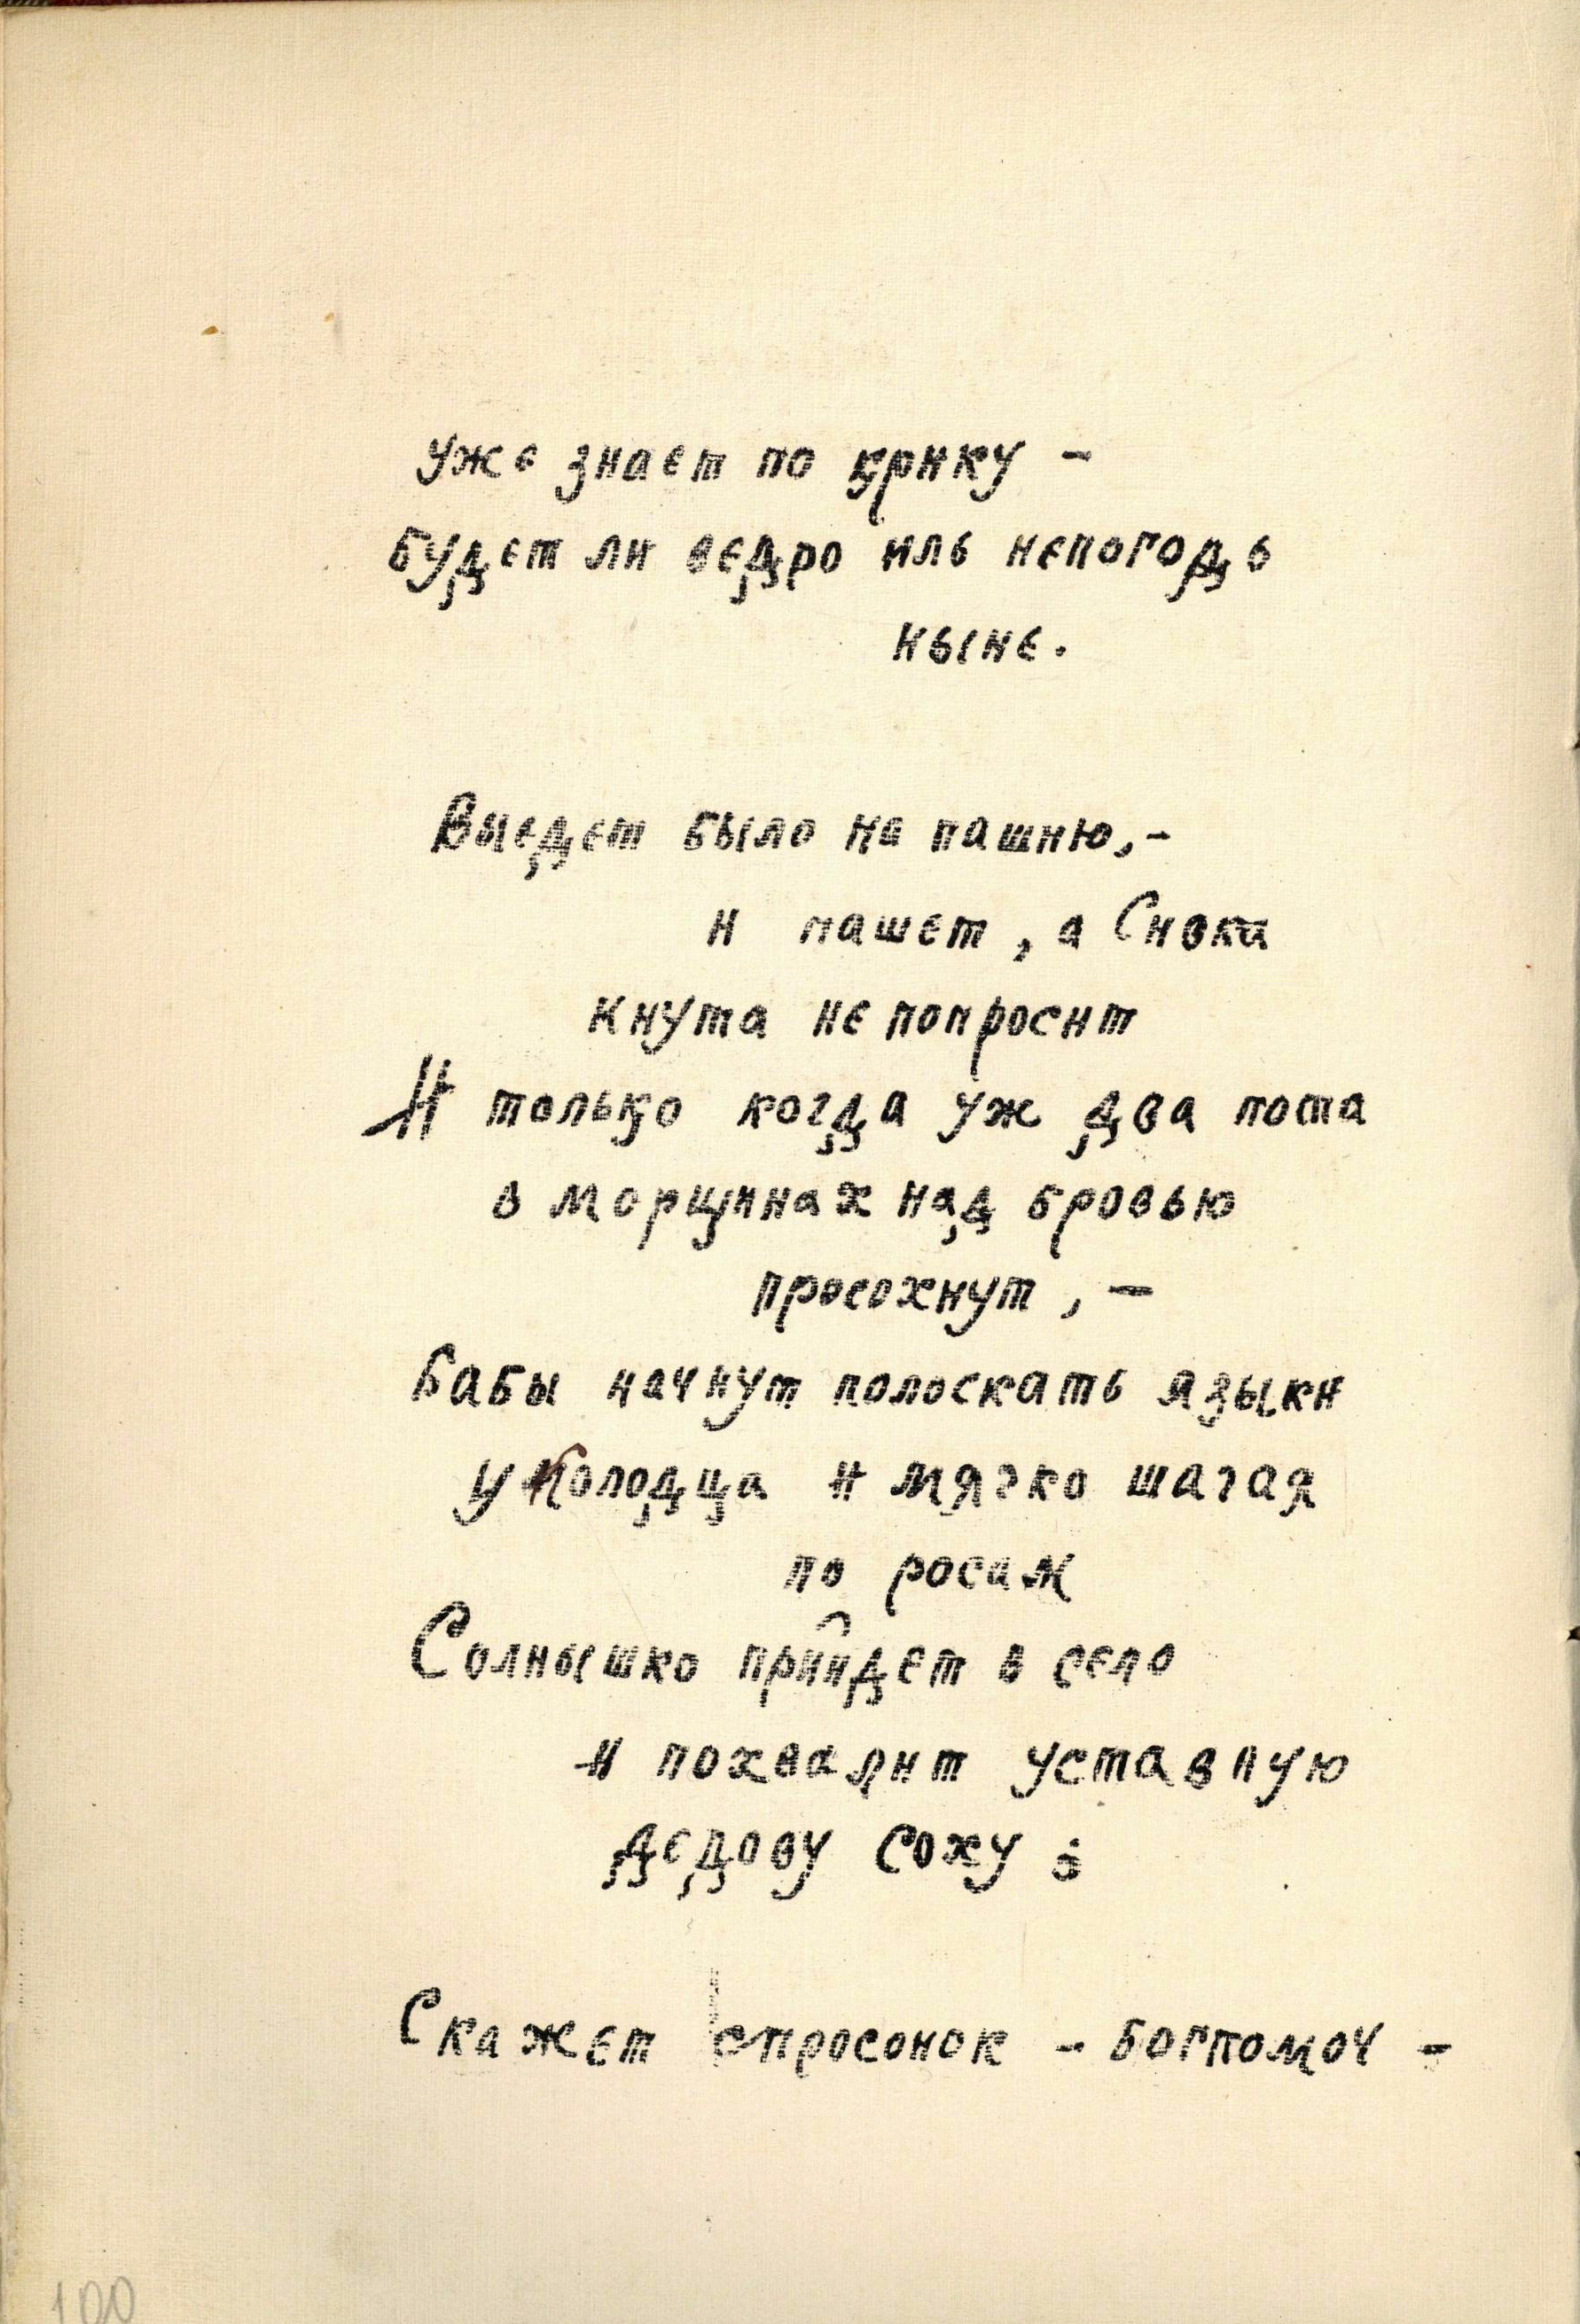 уже знает по крику –
будет ли ведро иль непогодь
ныне.
Выедет было на пашню,–
и пашет, а Сивка
кнута не попросит
И только когда уж два пота
в морщинах над бровью
просохнут, –
Бабы начнут полоскать языки
у колодца и мягко шагая
по росам
Солнышко прийдет в село
и похвалит уставную
дедову соху:
Скажет спросонок – богпомоч –
100